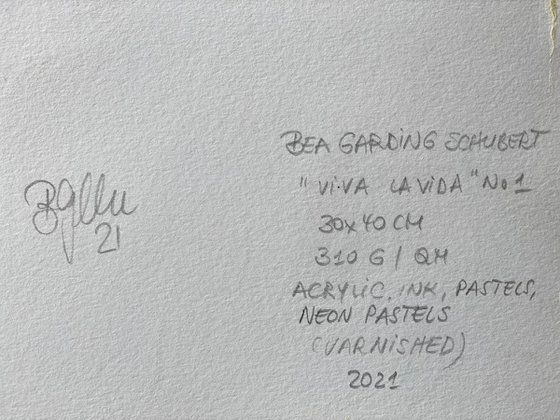 BEA GARDING SCHUBERT
"ViVA LA ViDA" No 1
30x40 CM
310 G / QM
ACRYLIC, INK, PASTELS,
NEON PASTELS
(VARNISHED)
2021
21